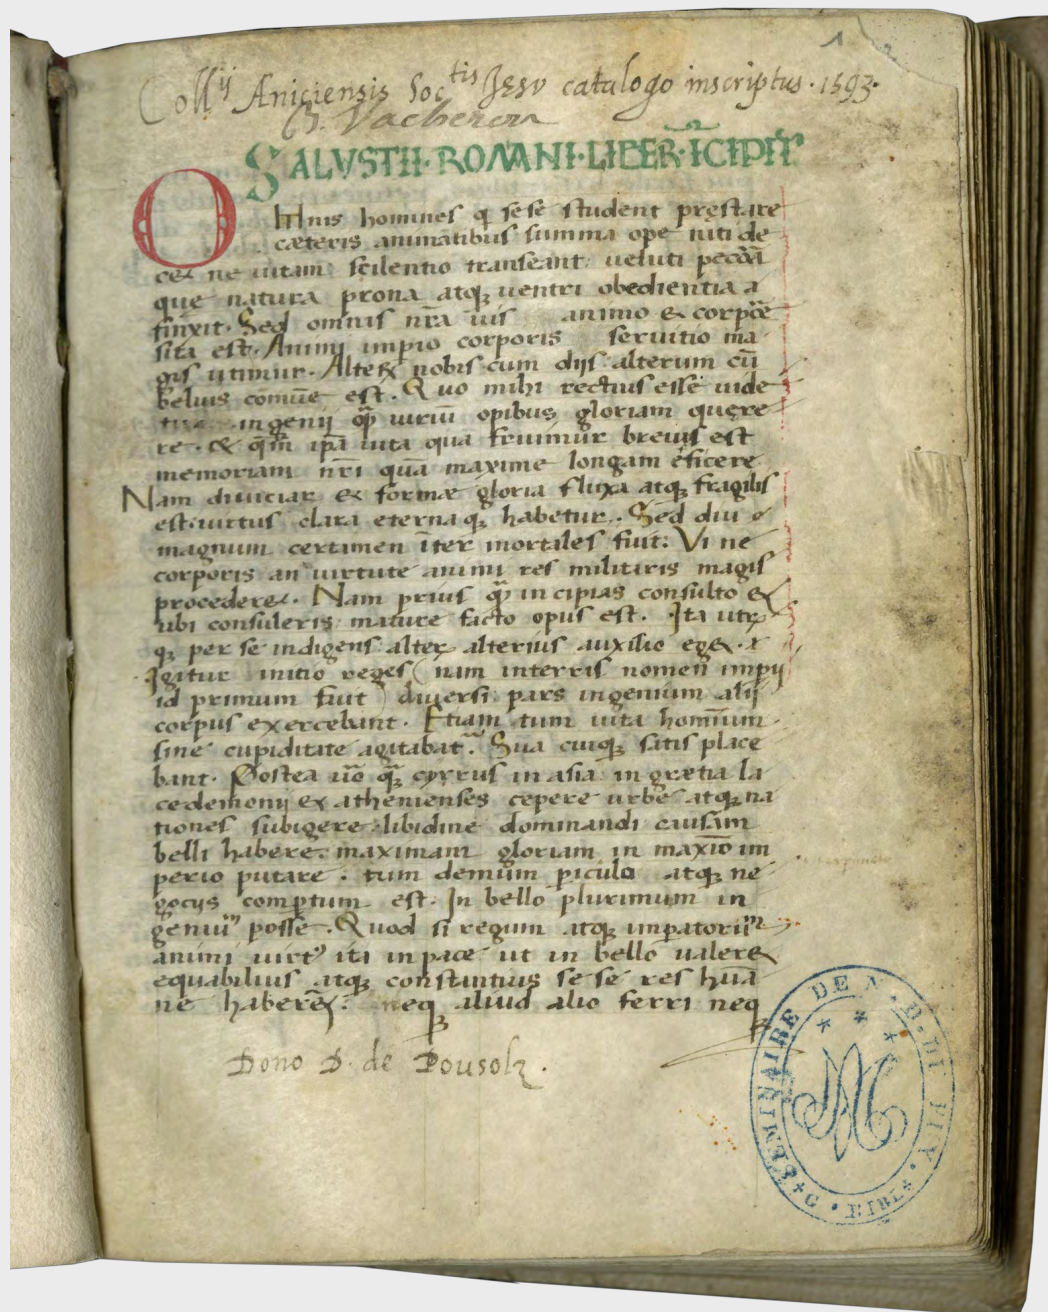 Collij Aniciensis Soctis Jesu catalogo inscriptus · 1593 ·
SALVSTII · ROMANI · LIBER · ĪCIPIT
OMnis homines q sese student pręstare
cæteris animatibus summa ope niti de
cet ne uitam scilentio transeant ueluti peco&#x0305;ā
que natura prona atq; uentri obedientia a
finxit. Sed omnis nr̄a uis animo & corpōe
sita est. Animi imperio corporis seruitio ma
gis utimur. Alteȝ nobis cum dijs alterum cū
beluis comūe est. Quo mihi rectius esse uide
tur ingenij qȝ̄ uiriū opibus gloriam quęre
re. & qm̄ ip̄a uita qua fruimur breuis est
memoriam nr̄i quā maxime longam eficere
Nam diuiciar & formæ gloria fluxa atq; fragilis
est uirtus clara eterna q; habetur. Sed diu
magnum certamen īter mortales fuit: Vi ne
corporis an uirtute animi res militaris magis
procederet. Nam prius qȝ̄ incipias consulto &
ubi consuleris mature facto opus est. Ita utr
q; per se indigens alter alterius auxilio eget.
Igitur initio reges (nam interris nomen impij
id primum fuit) diuersi pars ingenium alij
corpus exercebant. Etiam tum uita hominum
sine cupiditate agitabat᷑. Sua cuiq; satis place
bant. Postea uo᷑ qȝ̄ cyrrus in asia in grætia la
cedemonij & athenienses cepere urbes atq; na
tiones subigere libidine dominandi causam
belli habere. maximam gloriam in maxīo im
perio putare. tum demum piculo atq; ne
gocijs comptum est. In bello plurimum in
geniu᷑ posse. Quod si regum atq; imperatoriu᷑
animi uirt⁹ ita in pace ut in bello ualeret
equabilius atq; constantius sese res hūa
ne haberēt. neq aliud alio ferri neq
Dono D. de Pousolz.
SEMINAIRE DE N. D. DU PUY
G. BIBL.